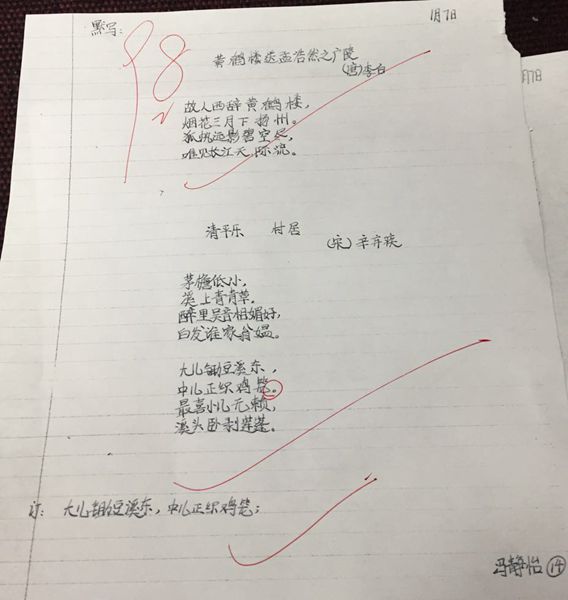 1月7日
默写:
98
黄鹤楼送孟浩然之广陵
(唐)李白
故人西辞黄鹤楼,
烟花三月下扬州。
孤帆远影碧空尽,
唯见长江天际流。
清平乐 村居
(宋)辛弃疾
茅檐低小,
溪上青青草。
醉里吴音相媚好,
白发谁家翁媪。
大儿锄豆溪东,
中儿正织鸡笼。
最喜小儿无赖,
溪头卧剥莲蓬。
订: 大儿锄豆溪东,中儿正织鸡笼;
冯静怡 14
月7日